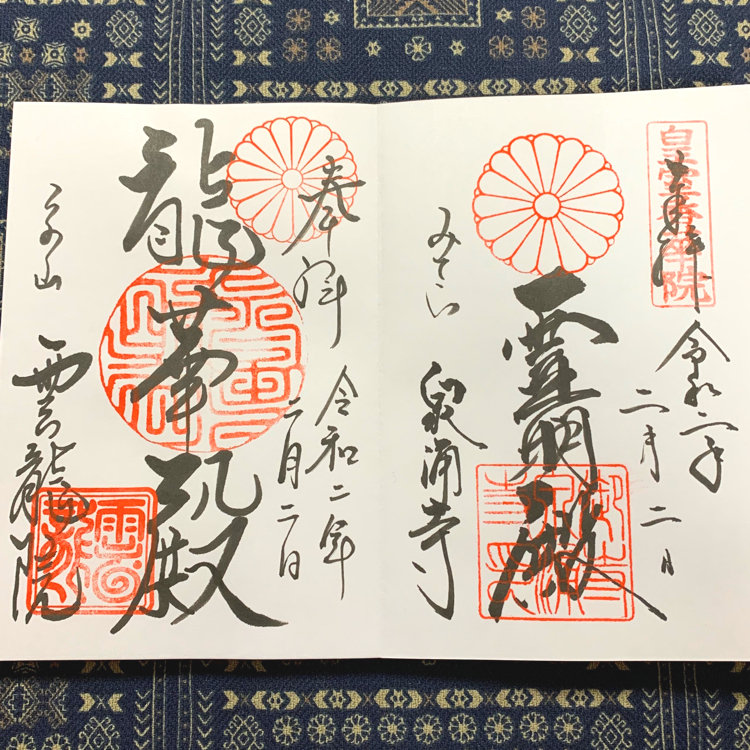 皇室香華院
奉拝
令和二年
二月二日
霊明殿
みてら
泉涌寺
奉拝
令和二年
二月二日
龍華殿
山
雲龍院